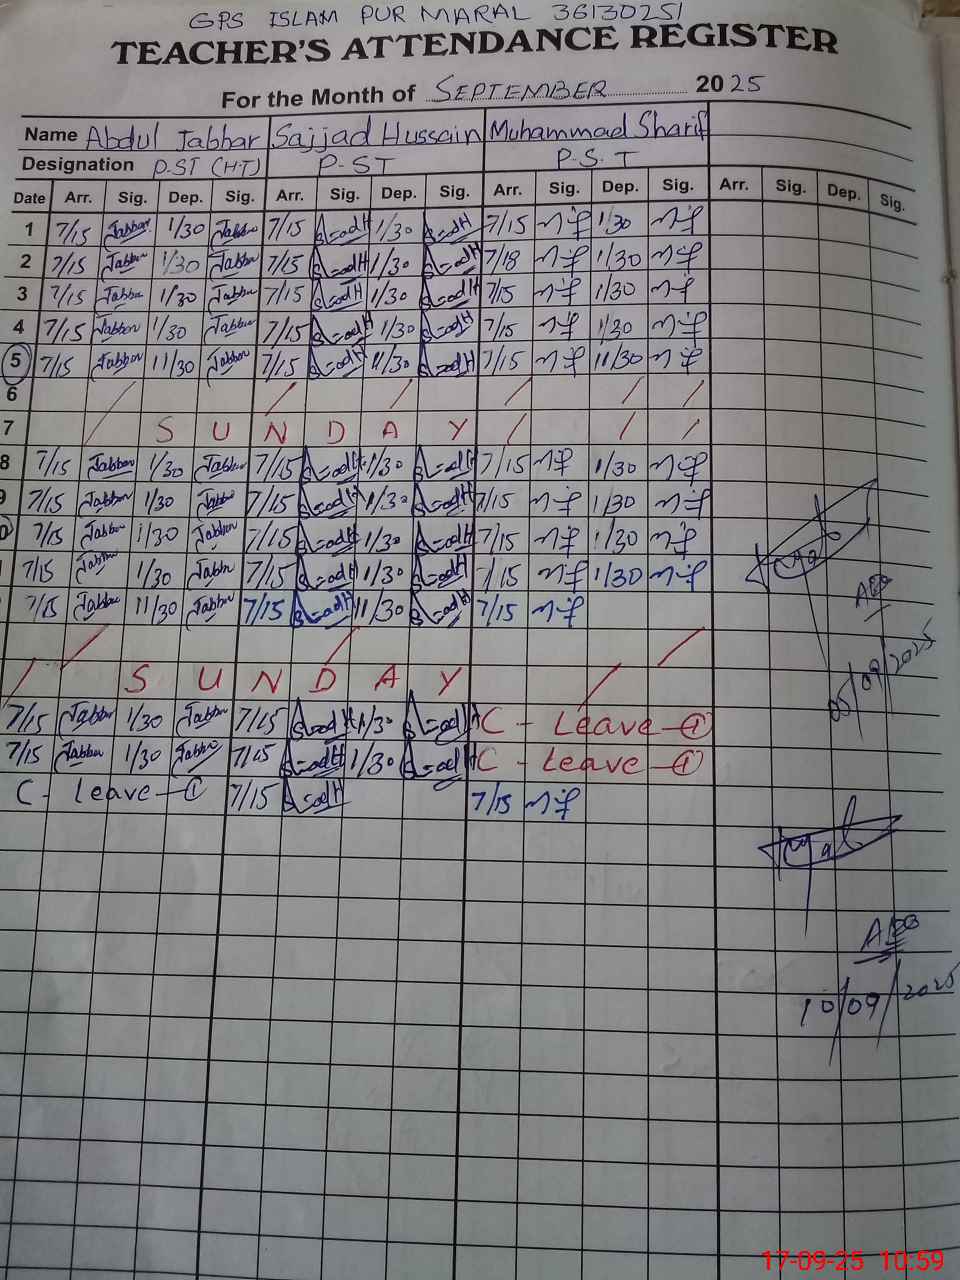 GPS ISLAM PUR MARAL 36130251
TEACHER'S ATTENDANCE REGISTER
For the Month of SEPTEMBER 2025
Name Abdul Jabbar Sajjad Hussain Muhammad Sharif
Designation P.ST (H.T) P-ST P.S.T
Date Arr. Sig. Dep. Sig. Arr. Sig. Dep. Sig. Arr. Sig. Dep. Sig. Arr. Sig. Dep. Sig.
1 7/15 Jabbar 1/30 Jabbar 7/15 1/30 7/15 1/30
2 7/15 Jabbar 1/30 Jabbar 7/15 1/30 7/18 1/30
3 7/15 Jabbar 1/30 Jabbar 7/15 1/30 7/15 1/30
4 7/15 Jabbar 1/30 Jabbar 7/15 1/30 7/15 1/30
5 7/15 Jabbar 11/30 Jabbar 7/15 11/30 7/15 11/30
6
7 S U N D A Y
8 7/15 Jabbar 1/30 Jabbar 7/15 1/30 7/15 1/30
9 7/15 Jabbar 1/30 Jabbar 7/15 1/30 7/15 1/30
0 7/15 Jabbar 1/30 Jabbar 7/15 1/30 7/15 1/30
7/15 Jabbar 1/30 Jabbar 7/15 1/30 7/15 1/30
7/15 Jabbar 11/30 Jabbar 7/15 11/30 7/15
S U N D A Y
7/15 Jabbar 1/30 Jabbar 7/15 1/30 C - Leave - 1
7/15 Jabbar 1/30 Jabbar 7/15 1/30 C - Leave - 1
C - Leave - 1 7/15 7/15
05/09/2025
10/09/2025
17-09-25 10:59